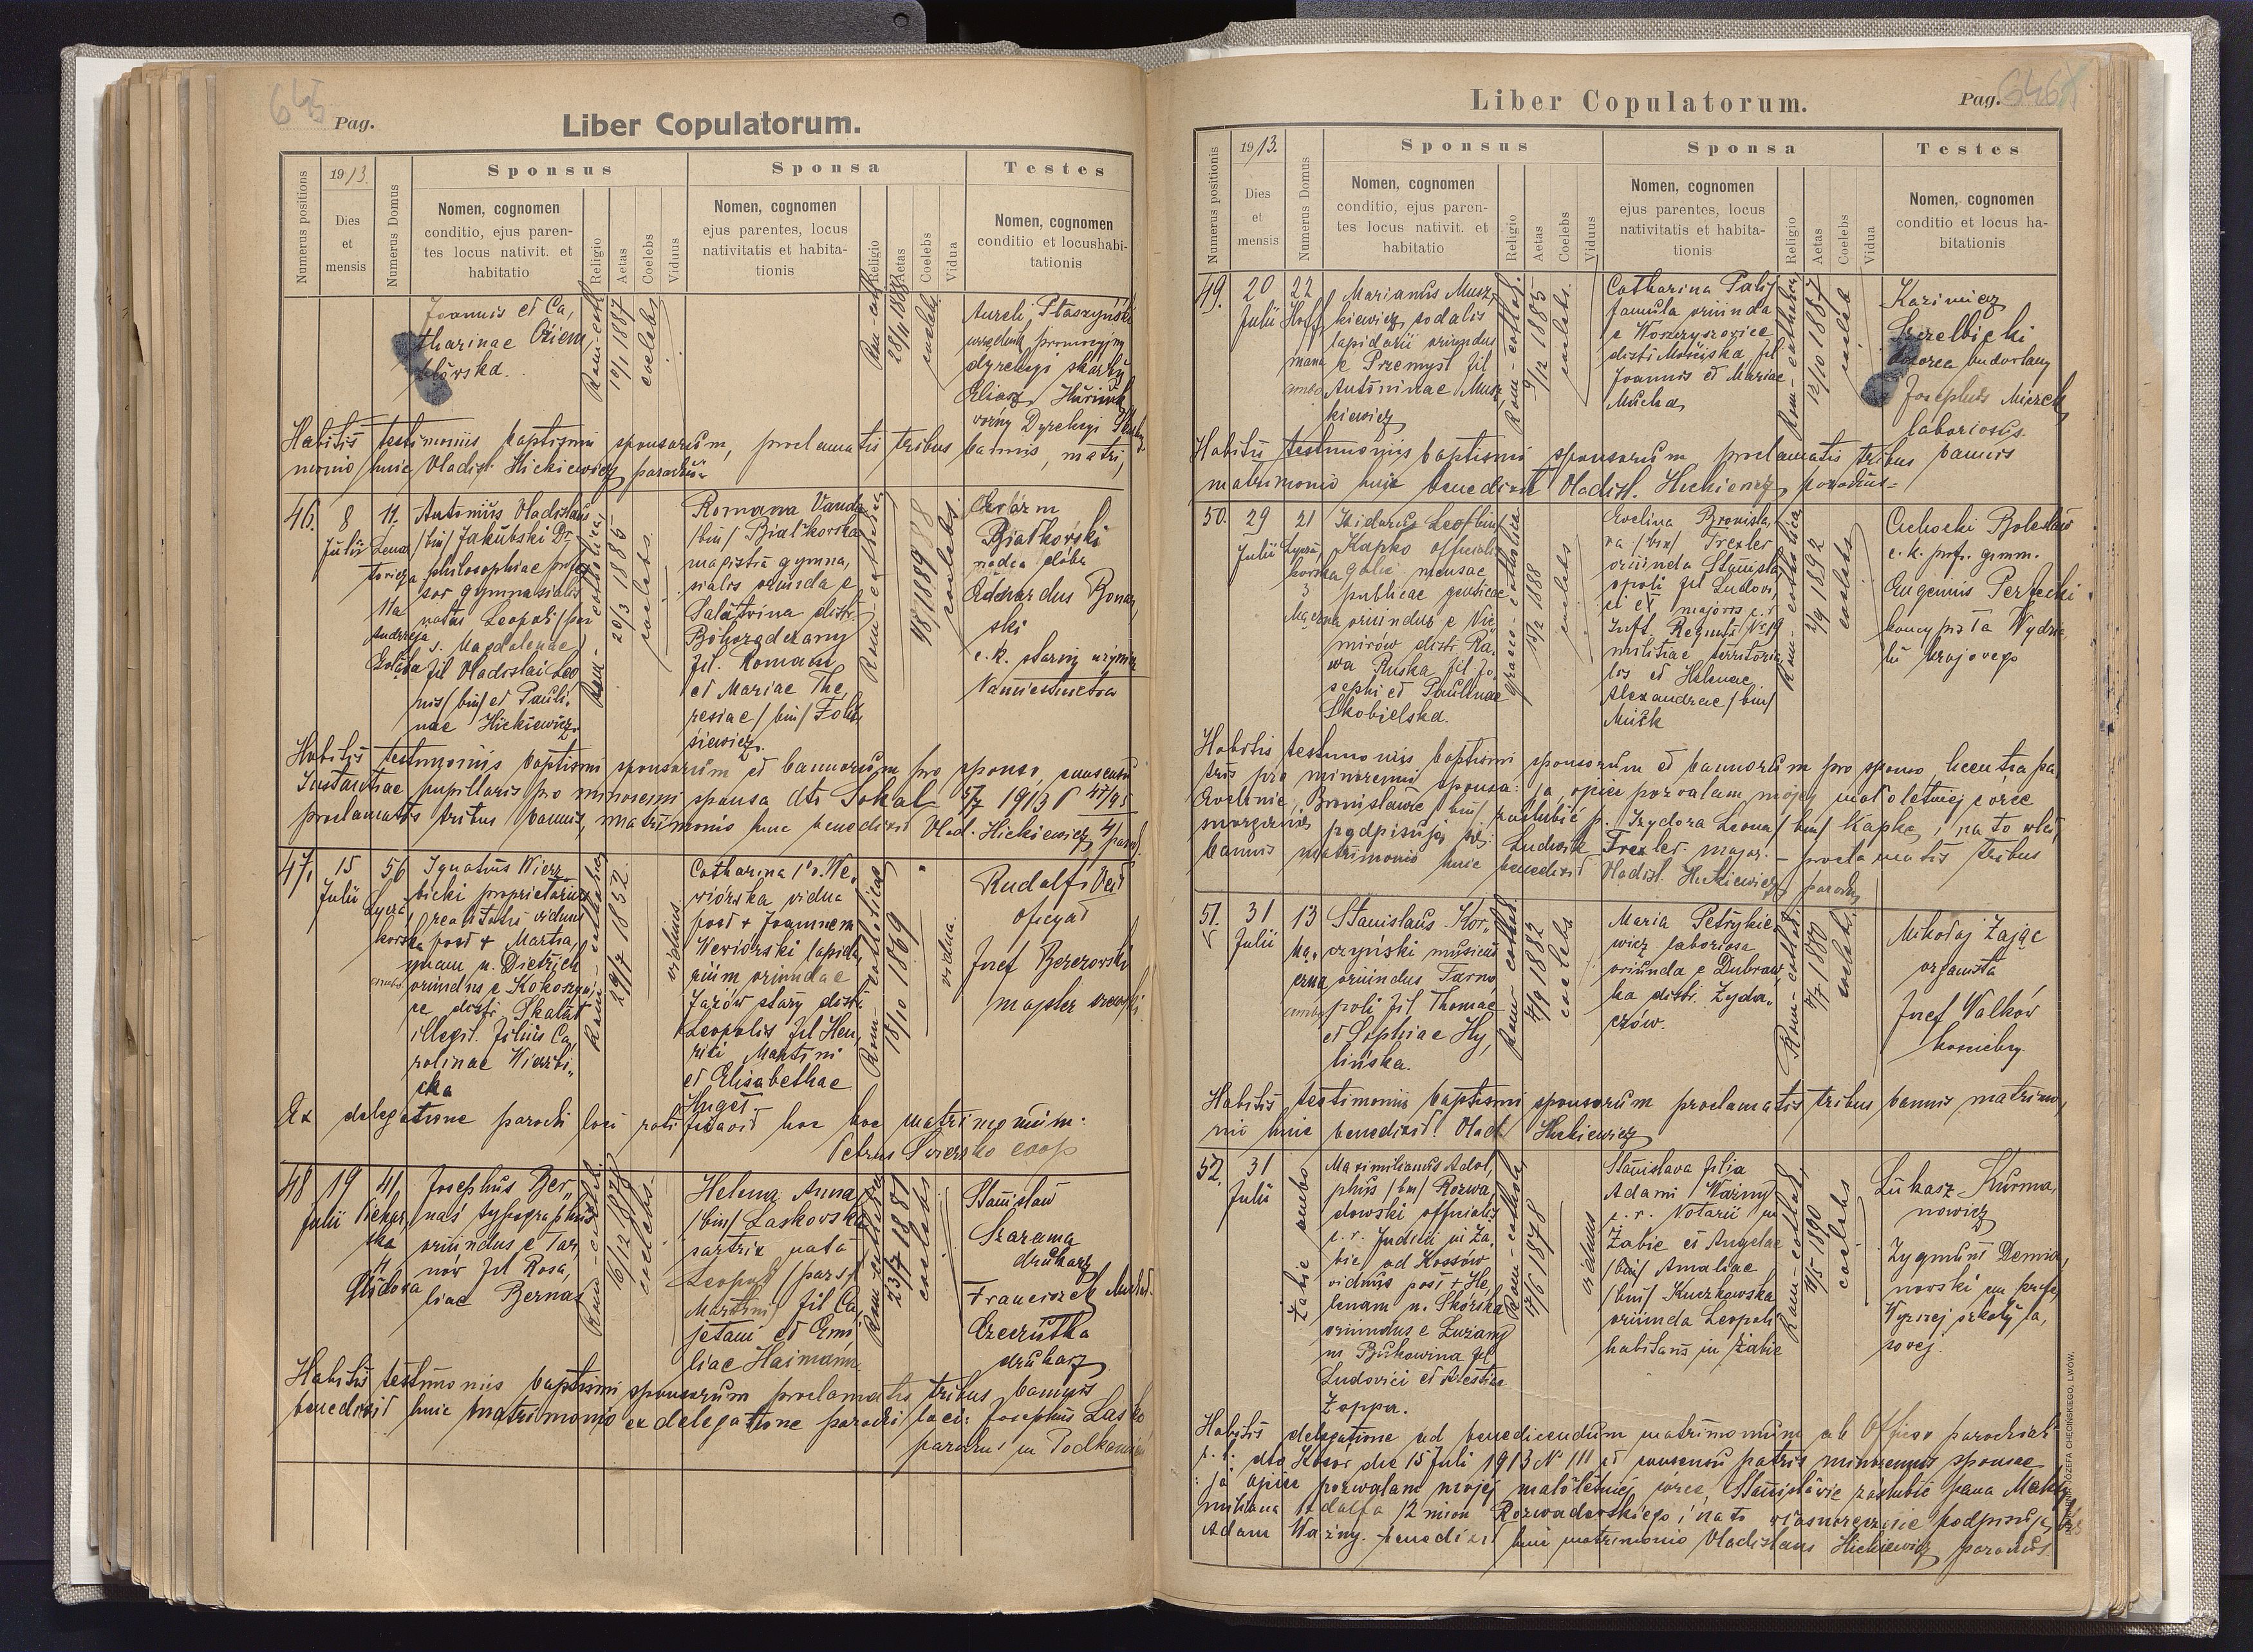 645 Pag.
Liber Copulatorum.
Numerus positionis
1913.
Dies
et
mensis
Numerus Domus
Sponsus
Nomen, cognomen
conditio, ejus paren-
tes locus nativit. et
habitatio
Religio
Aetas
Coelebs
Viduus
Sponsa
Nomen, cognomen
ejus parentes, locus
nativitatis et habita-
tionis
Religio
Aetas
Coelebs
Vidua
Testes
Nomen, cognomen
conditio et locushabi-
tationis
Joannis et Ca,
tharinae Oziem,
błowska.
Rom-cath
10/1 1887
coelebs
Rom-cath
coelebs
Aureli Ptaszyński
dyrekcyi skarbu
Eliasz
woźny Dyrekcyi
Habitis testimoniis baptismi sponsorum, proclamatis tribus bannis, matri,
monio huic Vladisl. Hickiewicz parochus
46. 8 Julii 11.
Antonius Vladislaus
/bin/ Jakubski Dr.
philosophiae profes
sor gymnasialis
natus Leopoli /par
s. Magdalenae/
fil Vladislai Leo
nis /bin/ et Pauli,
nae Hickiewicz.
Rom-catholica
20/3 1885
coelebs.
Romana Vanda
/bin/ Białkowska
magistra gymna,
sialis oriunda e
Salatvina distr.
Bohorodczany
fil. Romani
et Mariae The,
resiae /bin/
siewicz.
Rom catholica
1/8 1889
coelebs
Białkowski
radca
Edvardus
ski
c. k. starszy inżynier
Namiestnictwa
Habitis testimoniis baptismi sponsorum et bannorum pro sponso, consensu
Instantiae pupillaris pro minorenni sponsa dto Sokal 5/7 1913
proclamatis tribus bannis, matrimonio huic benedixit Vlad. Hickiewicz
47. 15 Julii 56
Ignatius Wierz
bicki proprietarius
realitatis viduus
post + Martia,
nnam n. Dietrich
oriundus e Kokoszyń,
ce distr. Skałat
illegit. filius Ca,
rolinae Wierzbi,
cka
Rom-catholica
29/7 1852
viduus
Catharina 1º v. We,
wiórska vidua
post + Joannem
Wewiorski lapida,
rium oriunda e
Jazów stary distr.
Leopolis fil Hen,
rici Martini
et Elisabethae
Huget
Rom-catholica
18/10 1869
vidua.
Rudolf
oficyał
Józef Berezowski
majster szewski
Ex delegatione parochi loci ratificavit hoc matrimonium:
Petrus coop
48 19 Julii 41
Josephus Ber,
naś typographus
oriundus e Tar,
nów fil Rosa,
liae Bernaś
Rom-cathol
16/12 1878
coelebs.
Helena Anna
/bin/ Laskowska
sartrix nata
Leopoli /par s
Martini/ fil Ca,
jetani et Emi
liae Haimann
Rom-catholica
23/7 1881
coelebs
Stanisław
Szarama
drukarz
Franciszek
drukarz
Habitis testimoniis baptismi sponsorum proclamatis tribus bannis
benedixit huic matrimonio ex delegatione parochi loci: Josephus
parochus in Podkamień
Liber Copulatorum.
Pag. 646
Numerus positionis
1913.
Dies
et
mensis
Numerus Domus
Sponsus
Nomen, cognomen
conditio, ejus paren-
tes locus nativit. et
habitatio
Religio
Aetas
Coelebs
Viduus
Sponsa
Nomen, cognomen
ejus parentes, locus
nativitatis et habita-
tionis
Religio
Aetas
Coelebs
Vidua
Testes
Nomen, cognomen
conditio et locus ha-
bitationis
49. 20 Julii 22
Marianus Musz,
kiewicz sodalis
lapidarii oriundus
e Przemysl fil
Antoninae Musz,
kiewicz
Rom-cathol.
9/12 1885
coelebs.
Catharina Palij
famula oriunda
e Woszczyszowice
distr. Mościska fil
Joannis et Mariae
Mucha
Rom-catholica
12/10 1887
coeleb
Kazimierz
Strzelbicki
dozorca budowlany
Josephus
laboriosus
Habitis testimoniis baptismi sponsorum proclamatis tribus bannis
matrimonio huic benedixit Vladisl. Hickiewicz parochus
50. 29 Julii 21
Isidorus Leo /bin/
Kapko officialis
oriundus e Nie
mirów distr. Ra,
wa Ruska fil Jo,
sephi et Paulinae
Skobielska.
Graeco-catholica
15/2 1888
coelebs
Evelina Bronisla,
va /bin/ Trexler
oriunda Stanisla
opoli fil Ludovi
ci et majoris c. r.
Inft. Regmts No 19
militiae territoria
lis et Helenae
Alexandrae /bin/
Muśk
Rom-catholica
2/9 1892
coelebs
Cichocki Bolesław
c. k. prof. gimn.
Eugenius Perfecki
koncypista Wydzia
łu krajowego
Habitis testimoniis baptismi sponsorum et bannorum pro sponso, licentia pa,
tris pro minorenni sponsa: ja, ojciec pozwalam mojej małoletniej córce
Ewelinie, Bronisławie /bin/ zaślubić p. Izydora Leona /bin/ Kapkę, i na to włas,
noręcznie podpisuję się: Ludwik Trexler major. – proclamatis tribus
bannis matrimonio huic benedixit Vladisl. Hickiewicz parochus
51. 31 Julii 13
Stanislaus Kor,
czyński musicus
oriundus Tarno
poli fil Thomae
et Sophiae Hy,
lińska.
Rom-cathol
7/9 1882
coelebs
Maria Petrykie
wicz laboriosa
oriunda e Dubraw
ka distr. Żyda,
czów.
Rom-cathol
coelebs.
Mikołaj Zając
organista
Józef Walków
kościelny
Habitis testimoniis baptismi sponsorum proclamatis tribus bannis matrimo,
nio huic benedixit. Vlad Hickiewicz
52. 31 Julii
Żabie ambo
Maximilianus Adol,
phus /bin/ Rozwa,
dowski officialis
c. r. Judicii in Ża
bie ad Kossów
viduus post + He
lenam n. Skórska
oriundus e Łużany
in Bukowina fil
Ludovici et
Zoppa.
Rom-cathol
17/6 1878
viduus
Stanislava filia
Adami Ważny
c. r. Notarii in
Żabie et Angelae
/bin/ Amaliae
/bin/ Kuczkowska
oriunda Leopoli
habitans in Żabie
Rom-cathol
1890
coelebs
Łukasz Kurma,
nowicz
Zygmunt Demia,
nowski em prof.
Wyższej szkoły la,
sowej.
Habitis delegatione ad benedicendum matrimonium ab Officio parochiali
r. l. dto Kosow die 15 Juli 1913 N 111 et consensu patris minorennis sponsae
: ja ojciec pozwalam mojej małoletniej córce, Stanisławie zaślubić pana Maksy
miliana Adolfa /2 mion Rozwadowskiego i na to własnoręcznie podpisuję się
Adam Ważny. benedixit huic matrimonio Vladislaus Hickiewicz parochus.
JÓZEFA CHĘCIŃSKIEGO, LWÓW.